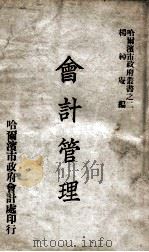 哈爾濱市政府叢書之二
楊純庵編
會計管理
哈爾濱市政府會計處印行